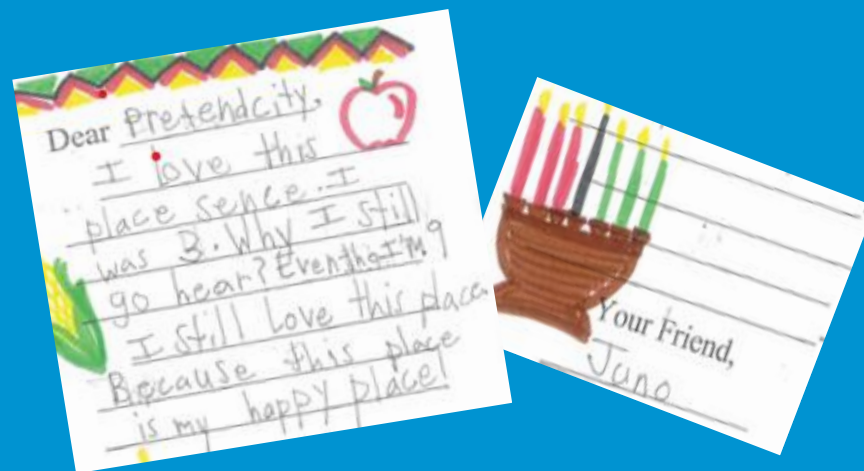 Dear Pretendcity,
I love this
place sence. I
was 3. Why I still
go hear? Eventho I'm 9
I still Love this place.
Because this place
is my happy place!
Your Friend,
Juno